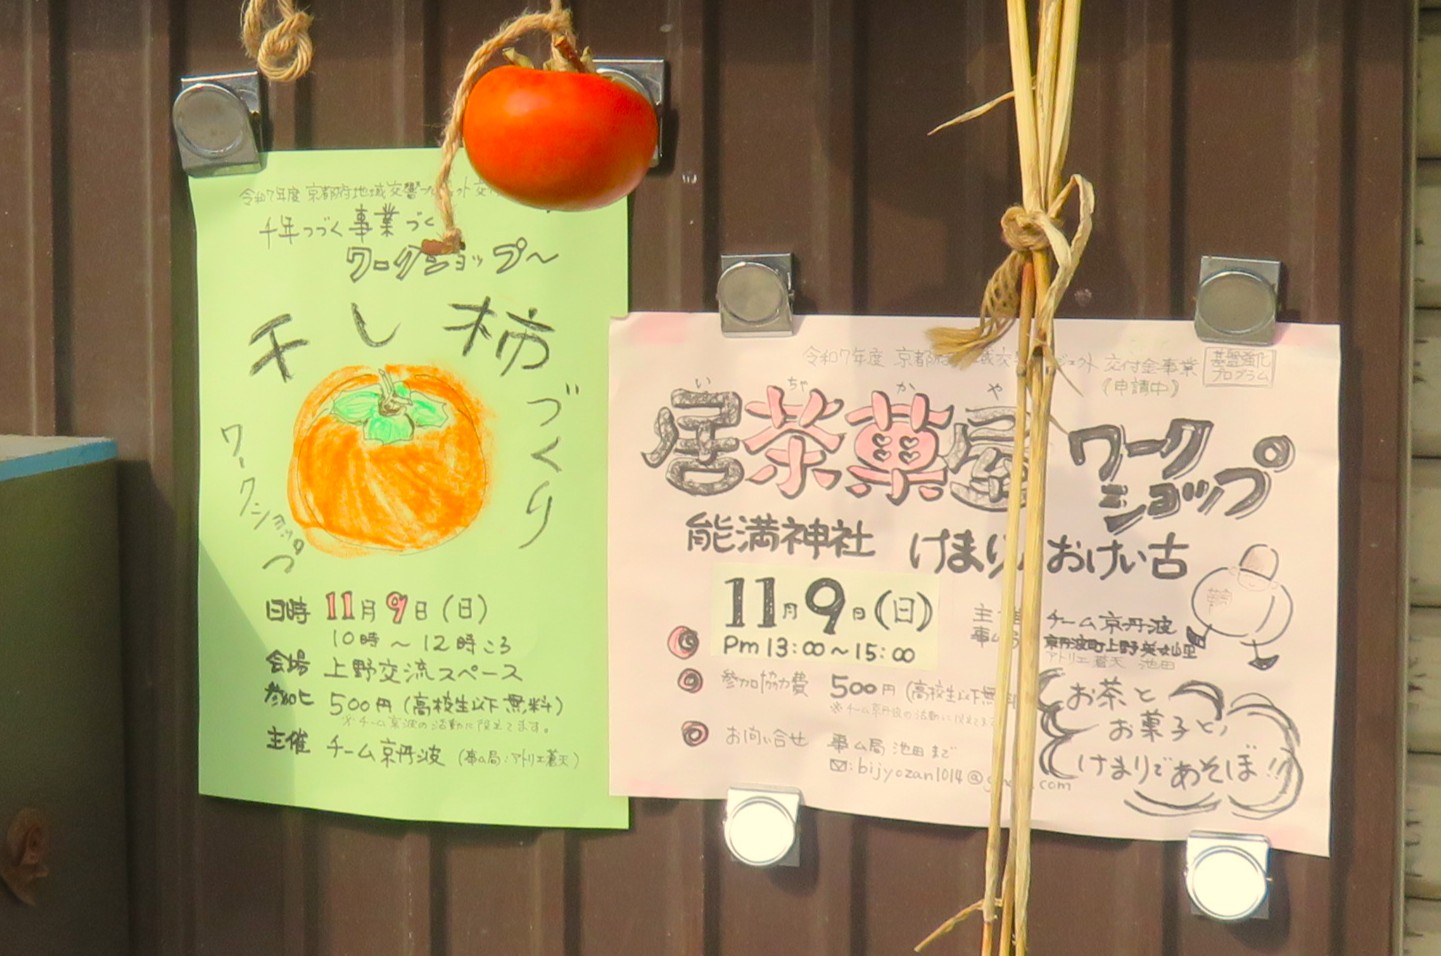 令和7年度 京都府地域交響プロジェクト
千年つづく事業づく
ワークショップ〜
干し柿
づくり
ワークショップ
日時 11月9日(日)
10時〜12時ころ
会場 上野交流スペース
参加ヒ 500円(高校生以下無料)
※チーム京丹波の活動に使えてます。
主催 チーム京丹波(事ム局:アトリエ蒼天)
令和7年度 京都府 ジェクト 交付金事業
(申請中)
基盤強化
プログラム
い ちゃ か や
居茶菓屋 ワーク
ショップ
能満神社 けまり おけい古
11月9日(日)
Pm 13:00〜15:00
主催 チーム京丹波
事ム局 京丹波町上野美女山里
アトリエ蒼天 池田
参加協力費 500円(高校生以下無料
※チーム京丹波の活動に
お問い合せ 事ム局 池田まで
✉:bijyozan1014@g .com
お茶と
お菓子と、
けまりであそぼ!!